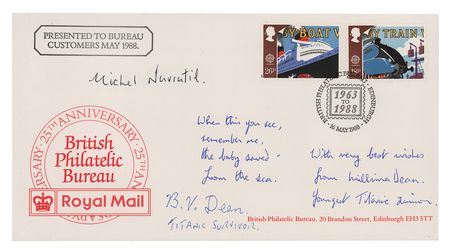 PRESENTED TO BUREAU
CUSTOMERS MAY 1988.
Michel Navratil.
BY BOAT
26P
BY TRAIN
18P
BRITISH PHILATELIC BUREAU · EDINBURGH
1963
TO
1988
16 MAY 1988
25TH ANNIVERSARY · 25TH ANNIVERSARY
British
Philatelic
Bureau
Royal Mail
When this you see,
remember me,
the baby saved
from the sea.
B.V. Dean.
TITANIC SURVIVOR.
With very best wishes
from Millvina Dean.
Youngest Titanic Survivor.
British Philatelic Bureau, 20 Brandon Street, Edinburgh EH3 5TT